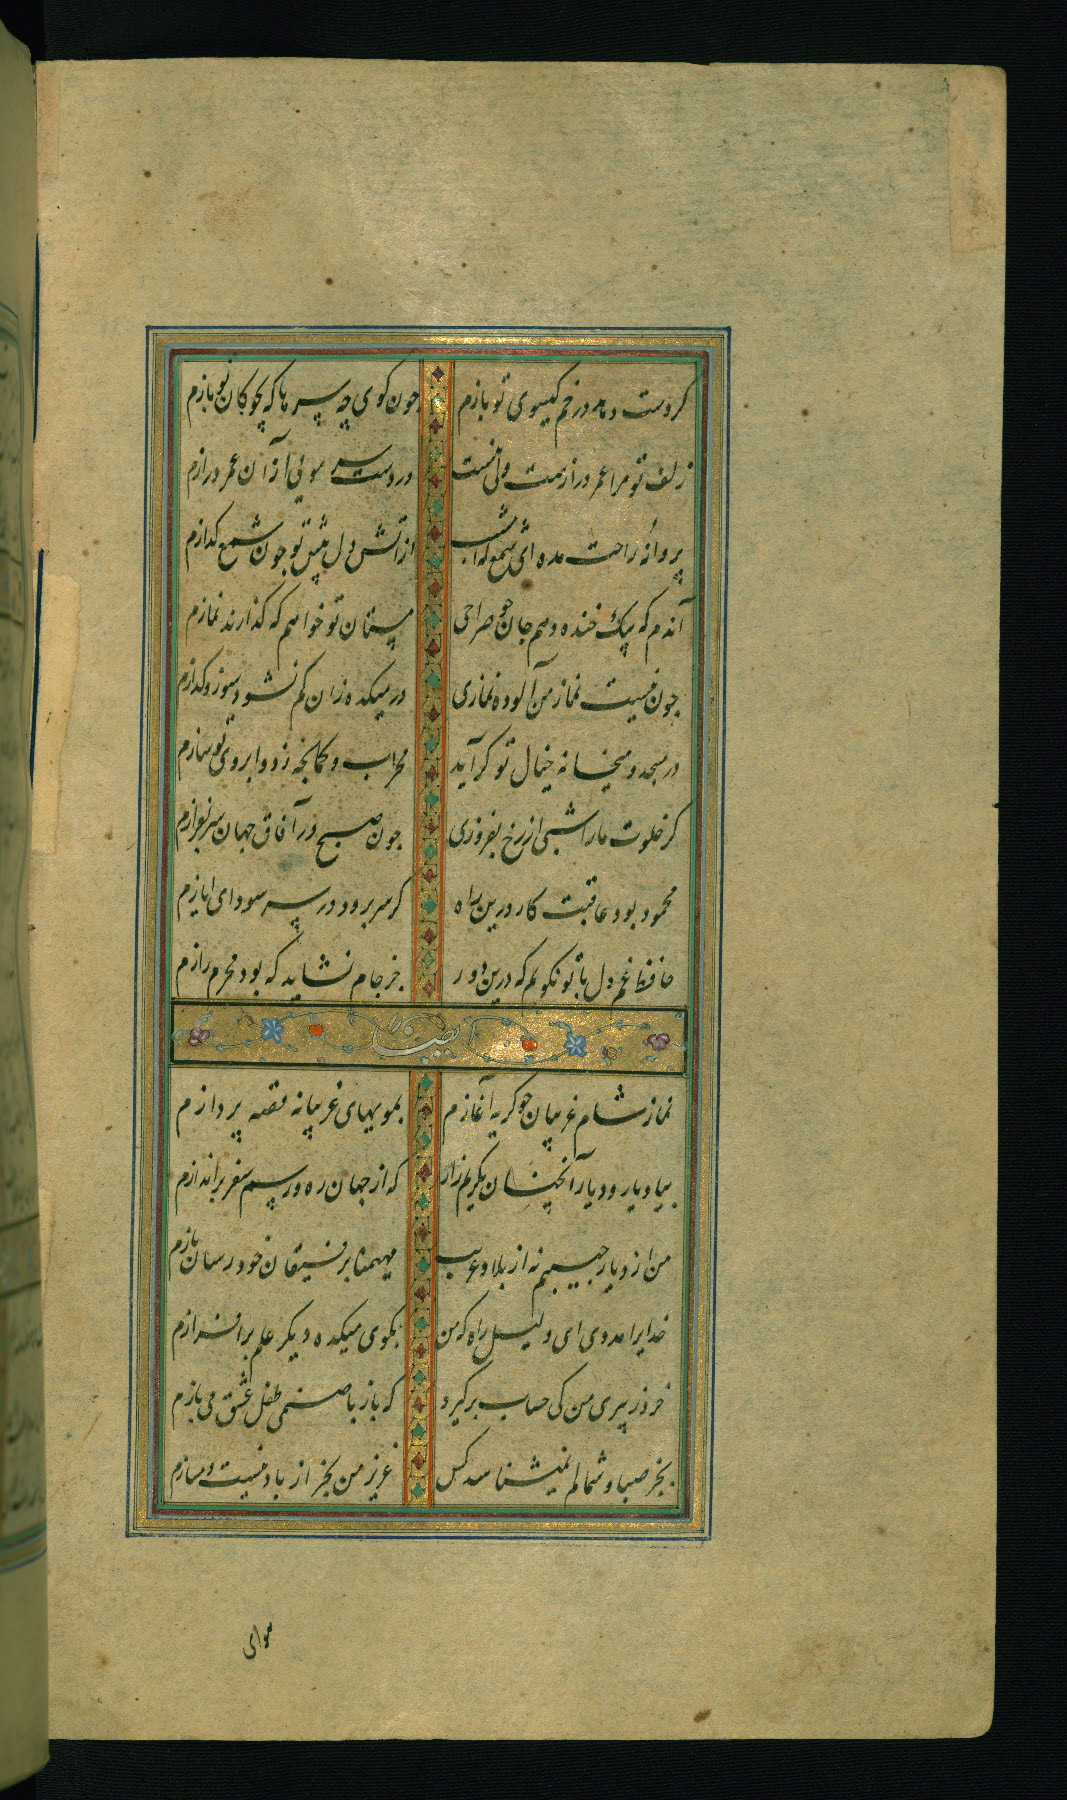 کر دست دهد در خم کیسوی تو بازم چون کوی چه سرها که بچوکان تو بازم
زلف تو مرا عمر درازست ولی نیست در دست سر مویی از آن عمر درازم
پروانهٔ راحت بده ای شمع که امشب از آتش دل پیش تو چون شمع کدازم
آندم که بیک خنده دهم جان چو صراحی مستان تو خواهم که کذارند نمازم
چون نیست نماز من آلوده نمازی در میکده زان کم نشود سوز و کدازم
در مسجد و میخانه خیال تو کر آید محراب و کمانچه ز دو ابروی تو سازم
کر خلوت ما را شبی از رخ بفروزی چون صبح در آفاق جهان سر بفرازم
محمود بود عاقبت کار درین راه کر سر برود در سر سودای ایازم
حافظ غم دل با تو نکویم که درین دور جز جام نشاید که بود محرم رازم
ایضا
نماز شام غریبان چو کریه آغازم بمویهای غریبانه قصه پردازم
بیاد یار و دیار آنچنان بکریم زار که از جهان ره و رسم سفر براندازم
من از دیار حبیبم نه از بلاد غریب مهیمنا برفیقان خود رسان بازم
خدایرا مددی ای دلیل راه که من بکوی میکده دیکر علم برافرازم
خرد ز پیری من کی حساب برکیرد که باز با صنمی طفل عشق می بازم
بجز صبا و شمالم نمیشناسد کس عزیز من بجز از باد نیست دمسازم
هوای